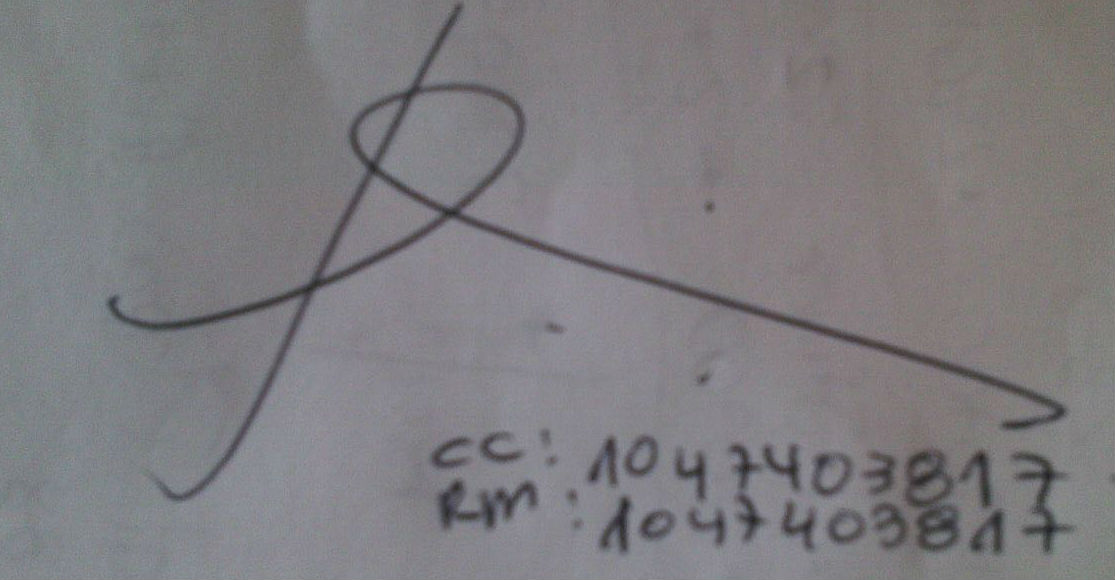 CC: 1047403817
Rm: 1047403817